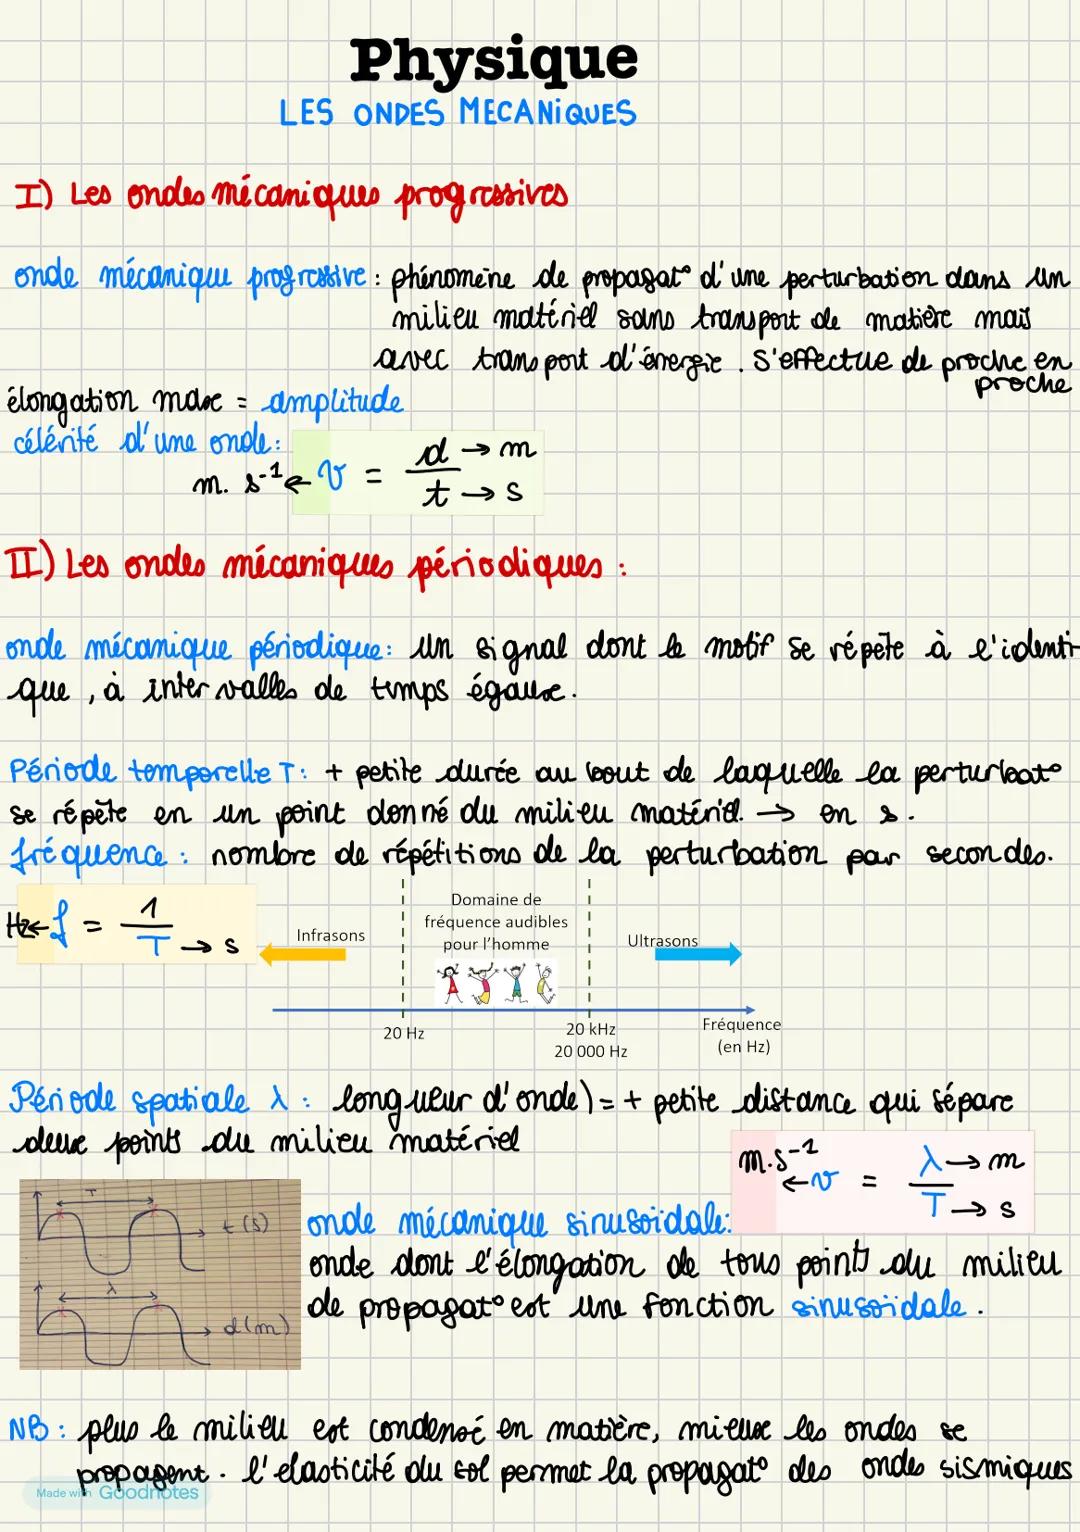 Physique
LES ONDES MECANIQUES
I) Les ondes mécaniques progressives
onde mécanique progressive : phénomène de propagat° d'une perturbation dans un
milieu matériel sans transport de matière mais
avec transport d'énergie . S'effectue de proche en
proche
élongation max = amplitude
célérité d'une onde :
m. s⁻¹ ← v = d → m
t → s
II) Les ondes mécaniques périodiques :
onde mécanique périodique : un signal dont le motif se répète à l'identi-
que , à intervalles de temps égaux .
Période temporelle T : + petite durée au bout de laquelle la perturbat°
se répète en un point donné du milieu matériel. → en s .
fréquence : nombre de répétitions de la perturbation par secondes.
Hz ← f = 1
T → s
Domaine de
fréquence audibles
pour l'homme
Infrasons
Ultrasons
20 Hz
20 kHz
20 000 Hz
Fréquence
(en Hz)
Période spatiale λ : longueur d'onde) = + petite distance qui sépare
deux points du milieu matériel
m.s⁻¹ ← v = λ → m
T → s
T
t (s)
λ
d (m)
onde mécanique sinusoïdale :
onde dont l'élongation de tous points du milieu
de propagat° est une fonction sinusoïdale .
NB : plus le milieu est condensé en matière, mieux les ondes se
propagent . l'elasticité du sol permet la propagat° des ondes sismiques
Made with Goodnotes